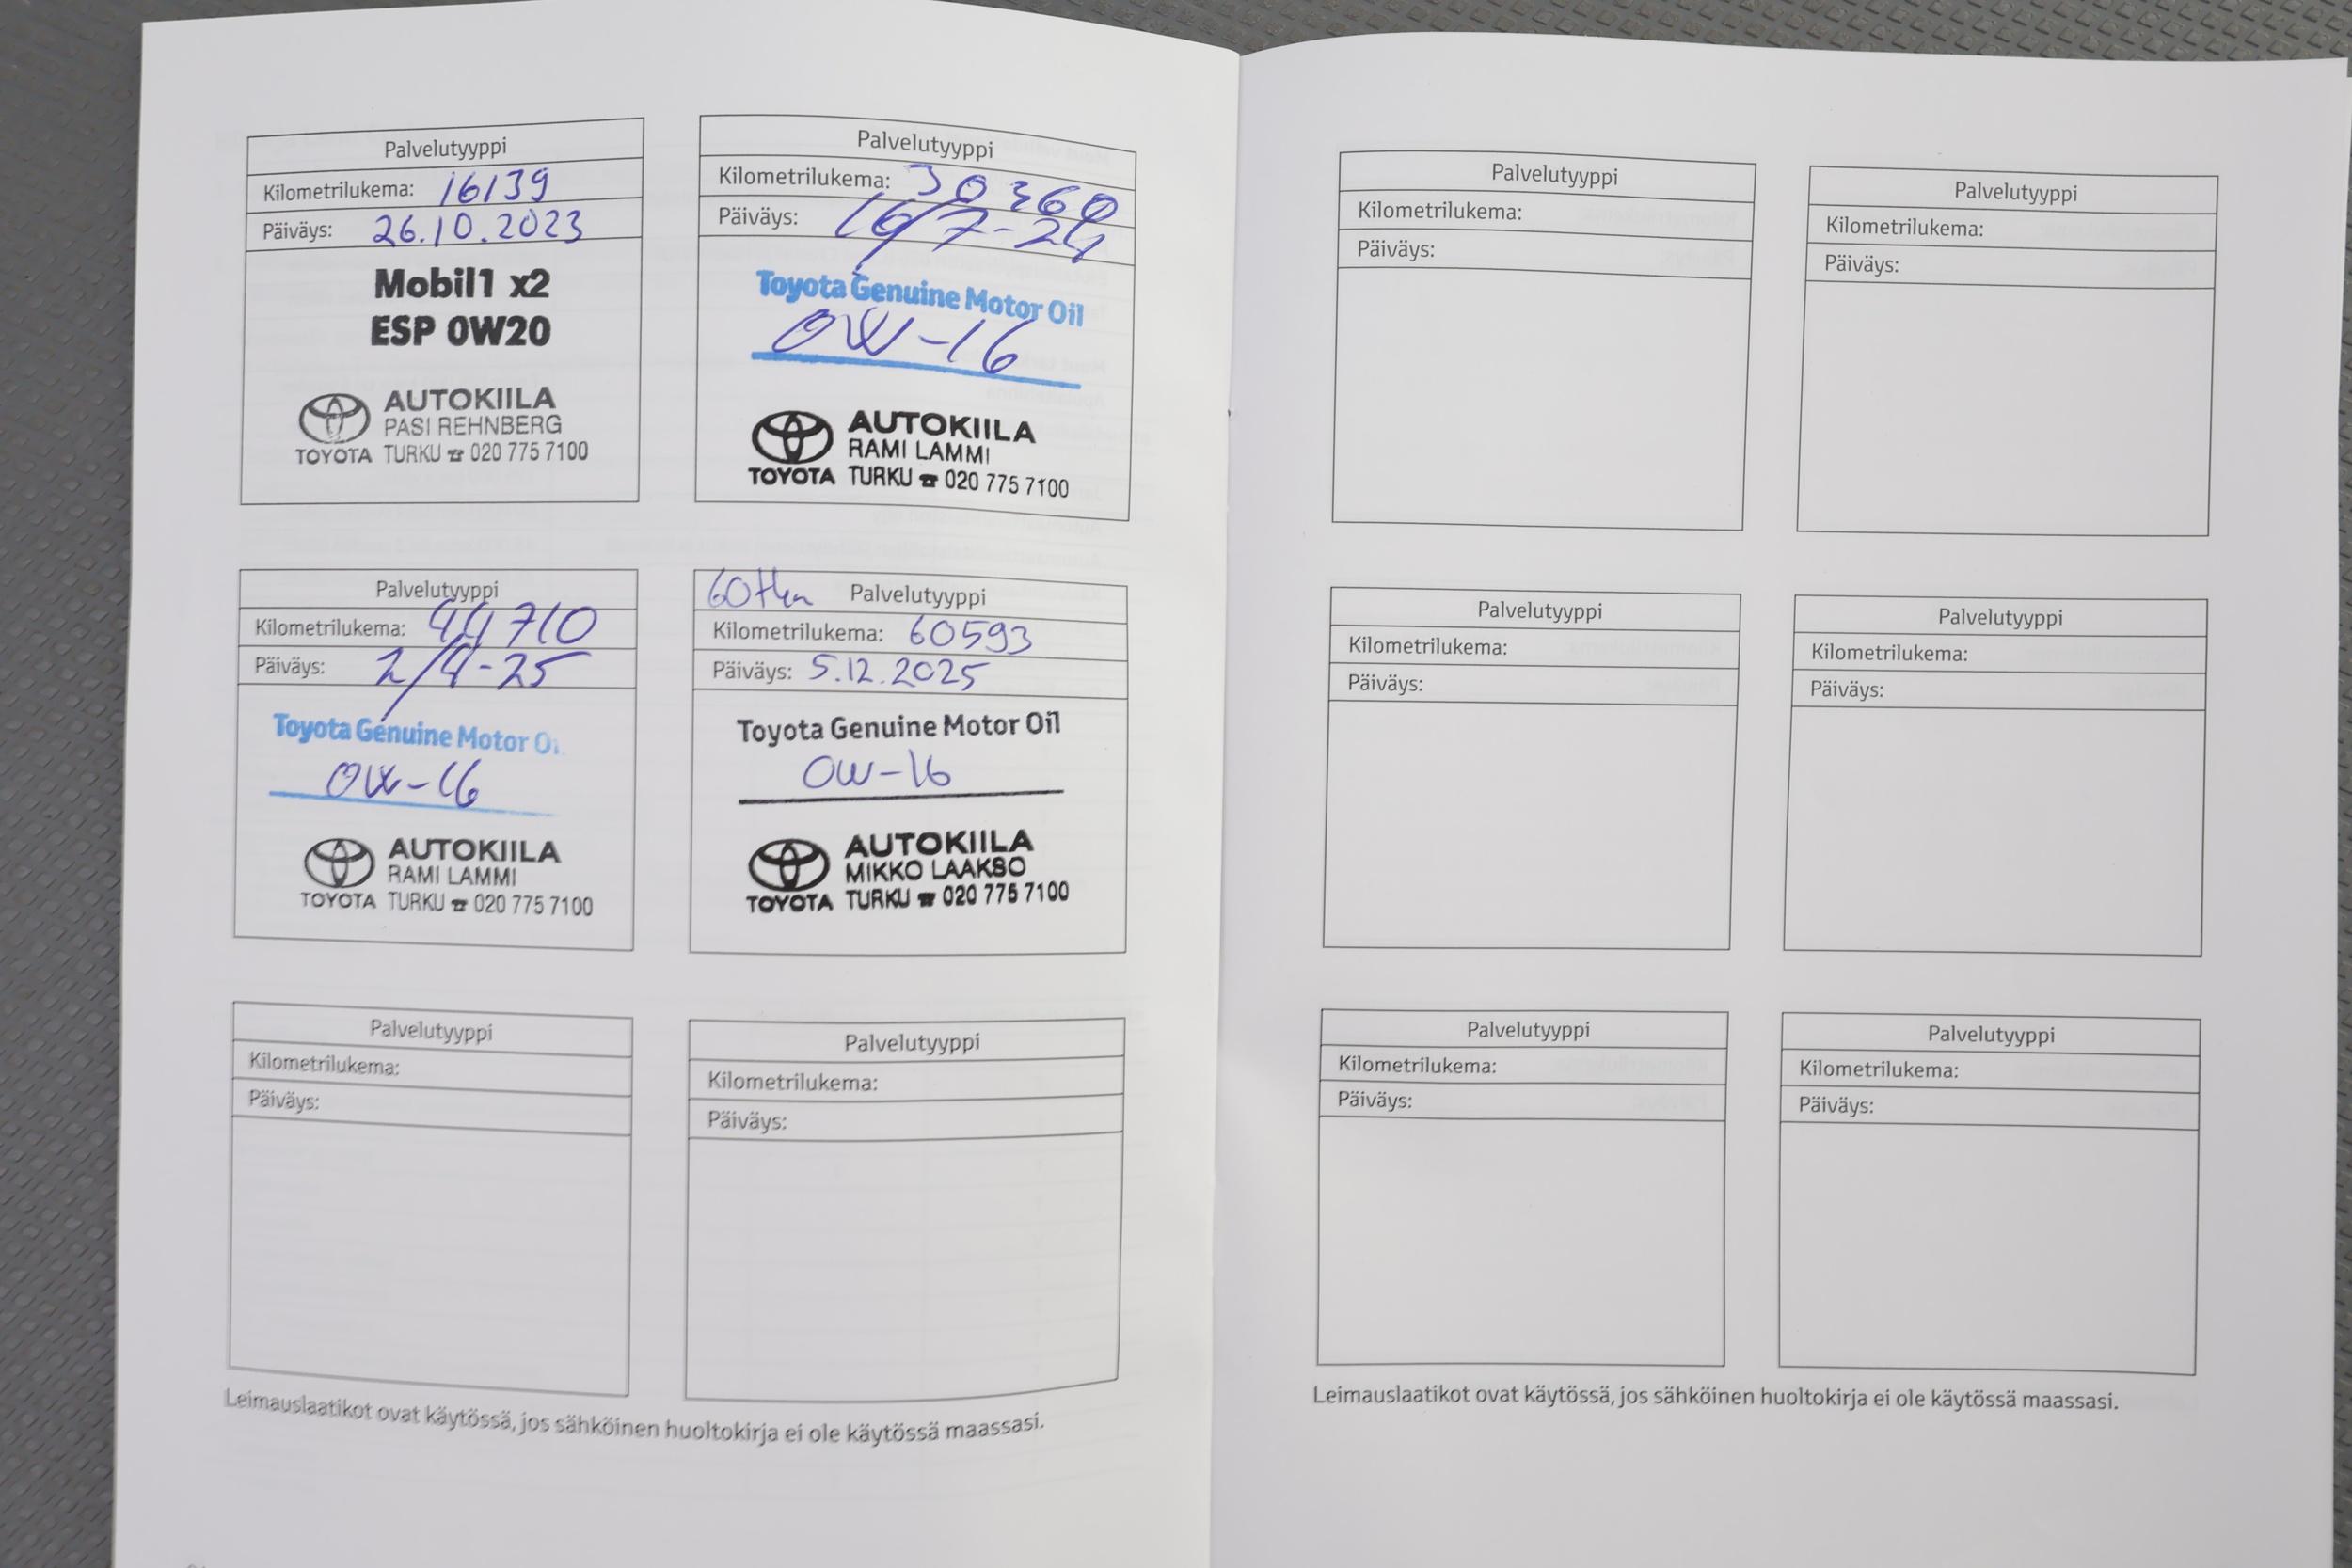 Palvelutyyppi
Kilometrilukema: 16139
Päiväys: 26.10.2023
Mobil1 x2
ESP 0W20
AUTOKIILA
PASI REHNBERG
TOYOTA TURKU ☎ 020 775 7100
Palvelutyyppi
Kilometrilukema: 30360
Päiväys: 16/7-24
Toyota Genuine Motor Oil
0W-16
AUTOKIILA
RAMI LAMMI
TOYOTA TURKU ☎ 020 775 7100
Palvelutyyppi
Kilometrilukema: 44710
Päiväys: 2/4-25
Toyota Genuine Motor Oi
0W-16
AUTOKIILA
RAMI LAMMI
TOYOTA TURKU ☎ 020 775 7100
60tkm Palvelutyyppi
Kilometrilukema: 60593
Päiväys: 5.12.2025
Toyota Genuine Motor Oil
0W-16
AUTOKIILA
MIKKO LAAKSO
TOYOTA TURKU ☎ 020 775 7100
Palvelutyyppi
Kilometrilukema:
Päiväys:
Palvelutyyppi
Kilometrilukema:
Päiväys:
Leimauslaatikot ovat käytössä, jos sähköinen huoltokirja ei ole käytössä maassasi.
Palvelutyyppi
Kilometrilukema:
Päiväys:
Palvelutyyppi
Kilometrilukema:
Päiväys:
Palvelutyyppi
Kilometrilukema:
Päiväys:
Palvelutyyppi
Kilometrilukema:
Päiväys:
Palvelutyyppi
Kilometrilukema:
Päiväys:
Palvelutyyppi
Kilometrilukema:
Päiväys:
Leimauslaatikot ovat käytössä, jos sähköinen huoltokirja ei ole käytössä maassasi.